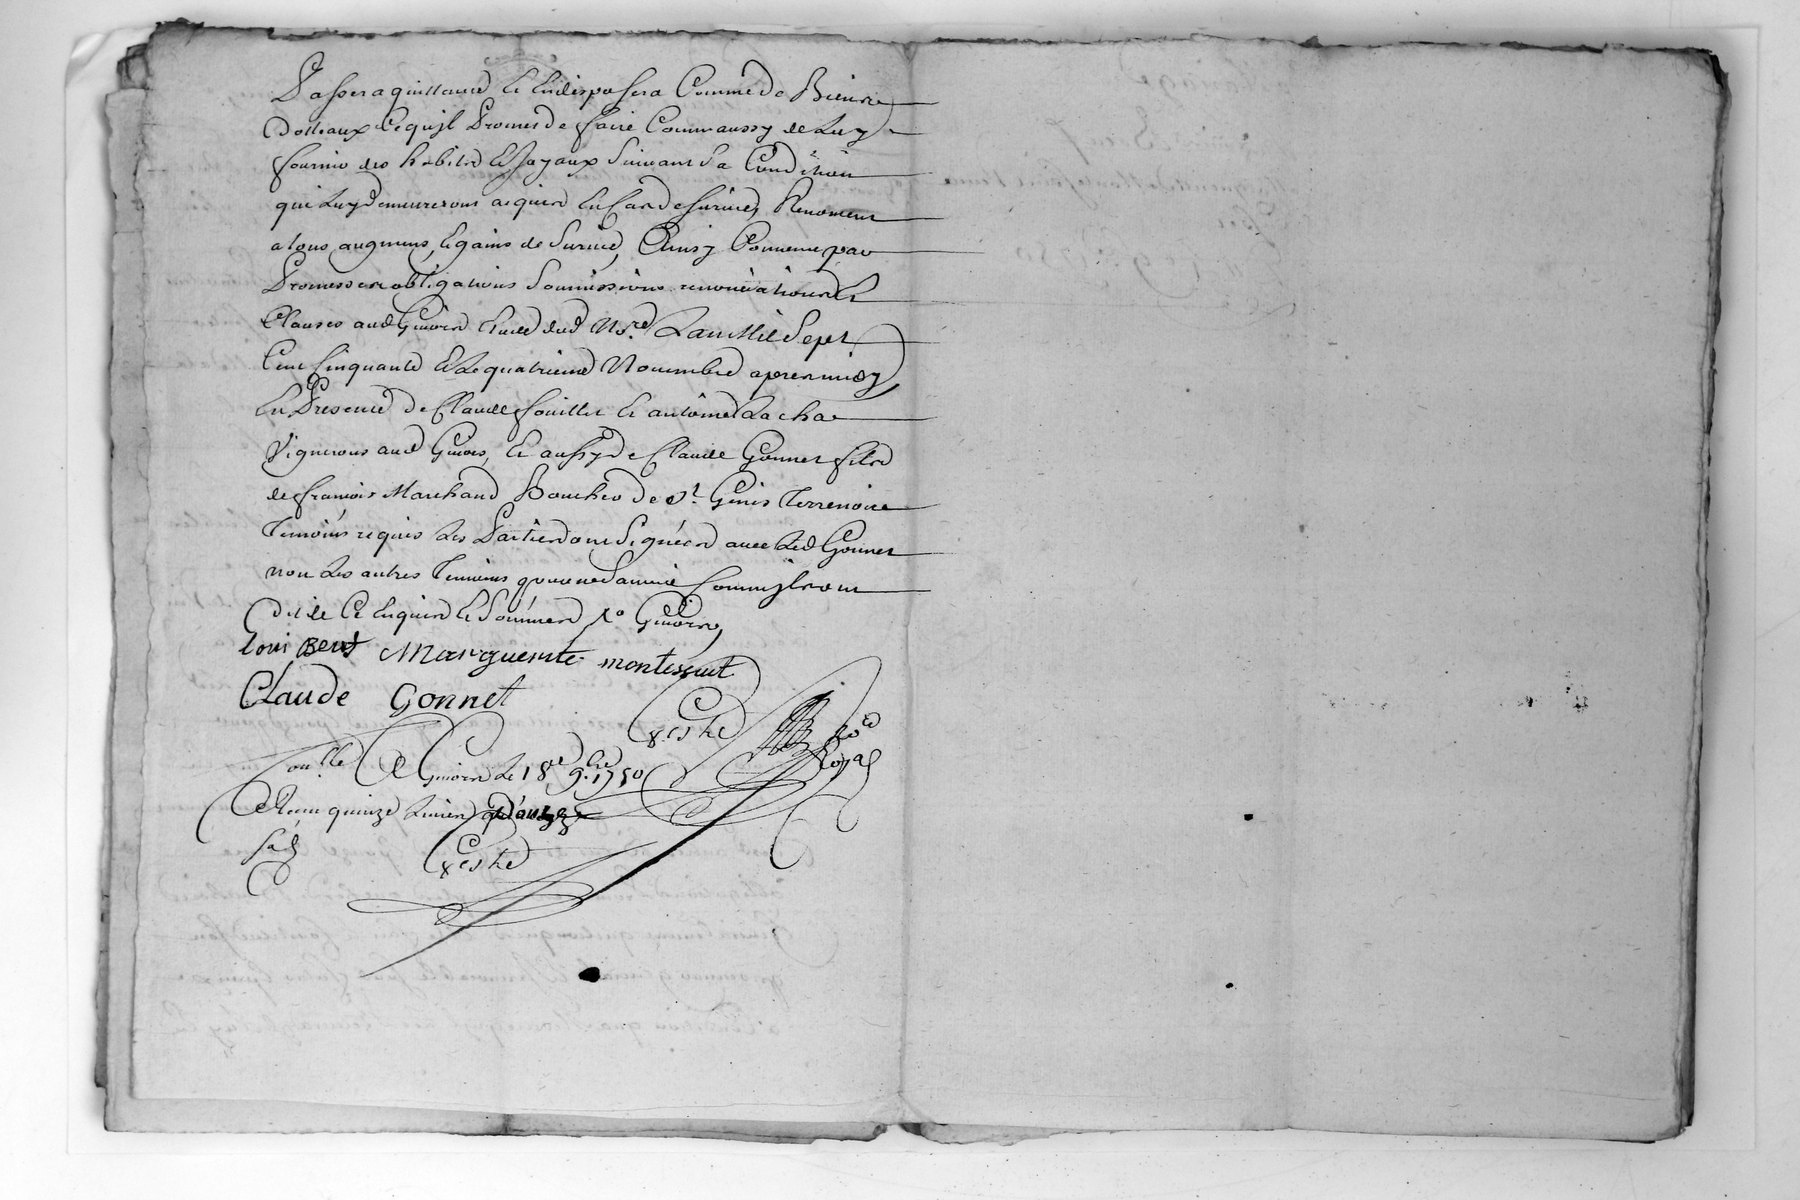 Passera quittance et en disposera Comme de Biens
dotteaux Ce quil Promet de faire Comm aussy de Luy
fournir des habits et Joyaux suivant sa Condition
qui Luy demeureront acquis En Cas de survie, Renoncent
a tous augmens, et gains de survie, Ainsy Convenu par
Promesses obligations soumissions renonciations et
Clauses aud Givors Etude dud No.re Lan Mil Sept
Cent Cinquante et Le quatrieme Novembre apres midy,
En Presence de Claude fouillet et antoine Lacha
Vignerons aud Givors, et aussy de Claude Gonnet fils
de francois Marchand Boucher de St. Genis Terrenoire
Temoins requis Les Parties ont signées avec Led Gonnet
non Les autres Temoins pour ne Savoir Comm ils ont
dit de Ce Enquis et Sommés
Loui Bert Marguerite montessuit
Claude Gonnet
No.re
Royal
Con.lle A Givors Le 18e 9.bre 1750
Reçu quinze Livres